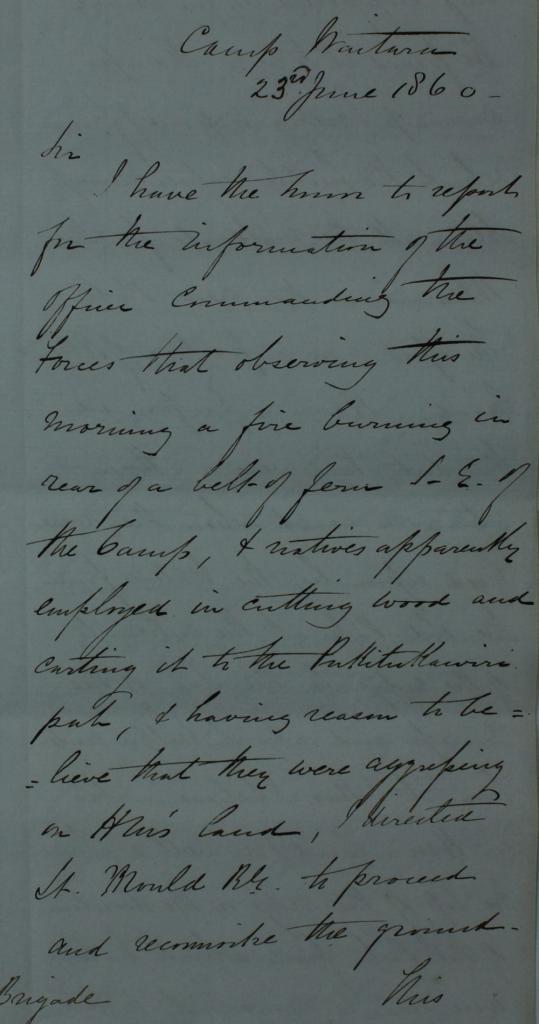 Camp Waitara
23rd June 1860 -
Sir
I have the honor to report
for the information of the
Officer Commanding the
Forces that observing this
morning a fire burning in
rear of a belt of fern S-E. of
the Camp, & natives apparently
employed in cutting wood and
carting it to the Pukitukawiri
pah, & having reason to be=
=lieve that they were aggressing
on land, I directed
Lt. Mould RE. to proceed
and reconnoitre the ground-
Brigade This